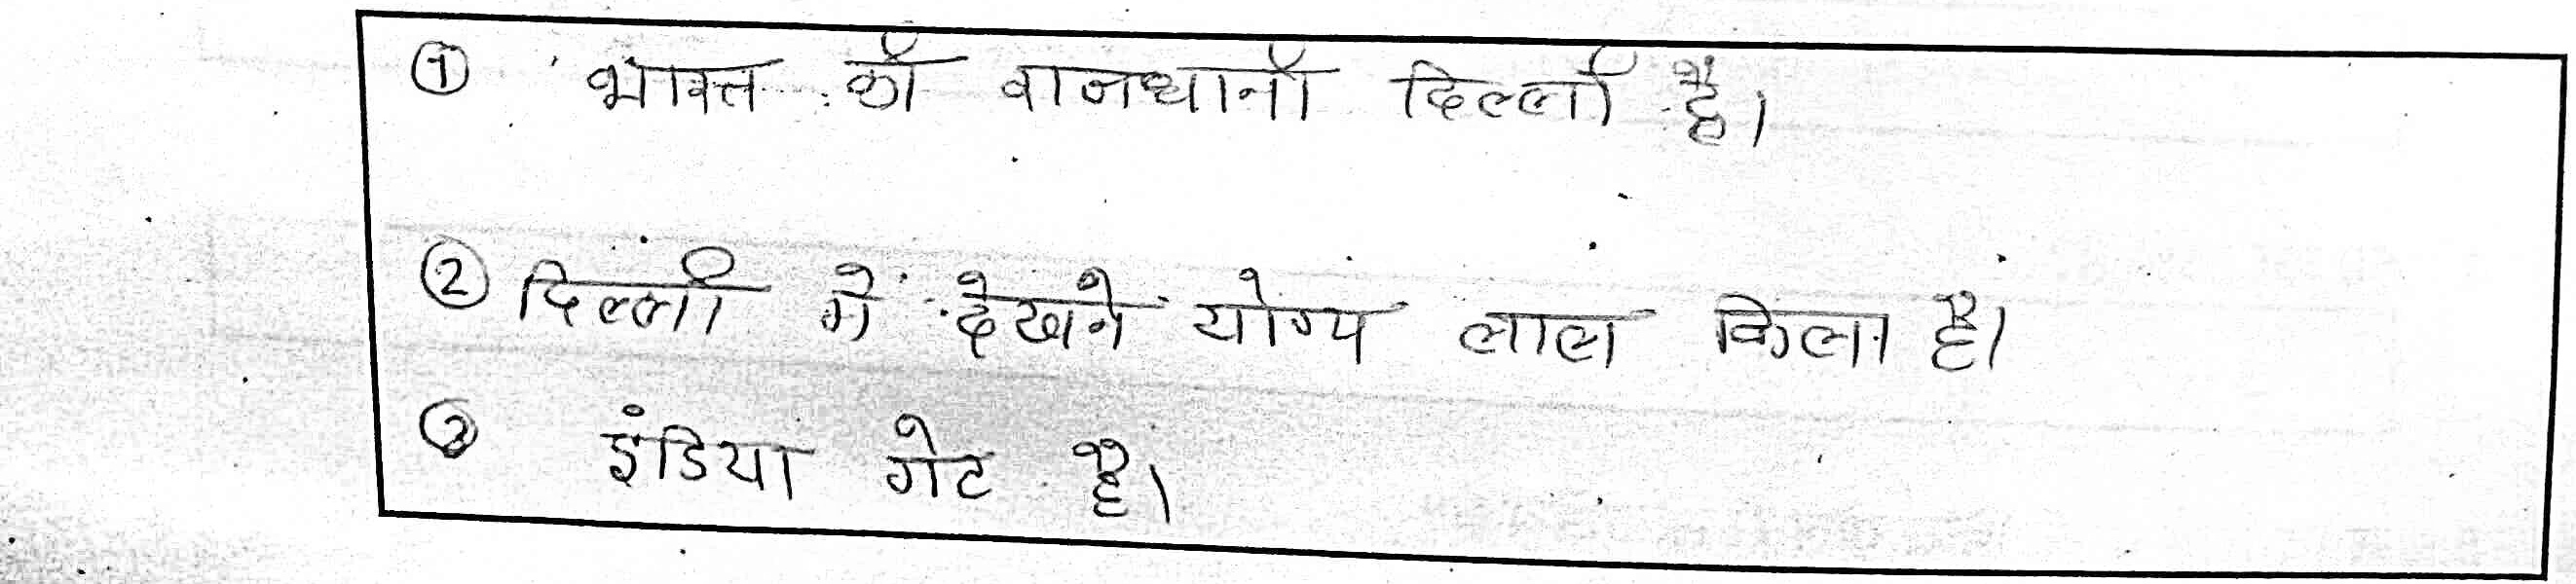 ① भारत की राजधानी दिल्ली है।
② दिल्ली में देखने योग्य लाल किला है।
③ इंडिया गेट है।